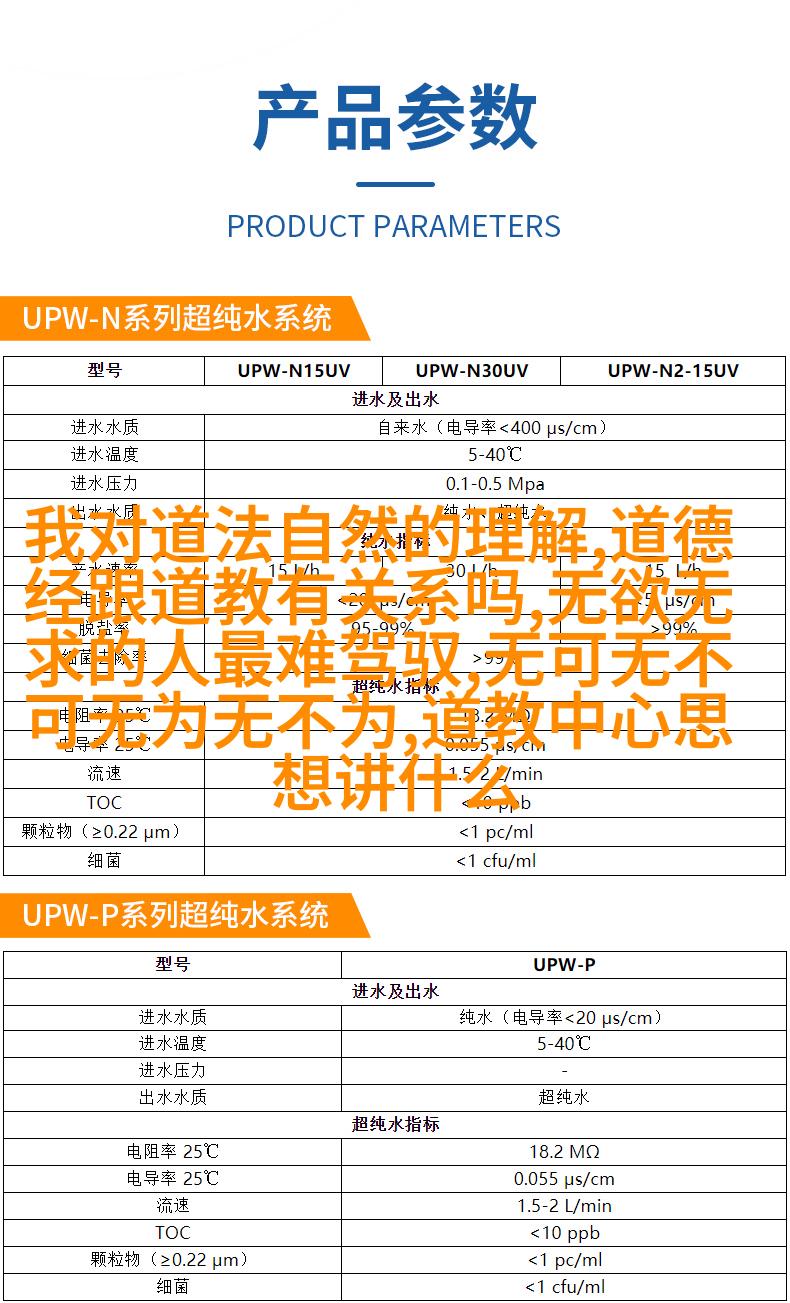 产品参数
PRODUCT PARAMETERS
UPW-N系列超纯水系统
型号 UPW-N15UV UPW-N30UV UPW-N2-15UV
进水及出水
进水水质 自来水（电导率<400 μs/cm）
进水温度 5-40℃
进水压力 0.1-0.5 Mpa
出水水质 纯水、超纯水
我对道法自然的理解,道德
纯水指标
产水速率 15 L/h 30 L/h 15 L/h
经跟道教有关系吗,无欲无
电导率 <20 μs/cm <5 μs/cm
脱盐率 95-99% >99%
求的人最难驾驭,无可无不
细菌去除率 >99%
超纯水指标
可无为无不为,道教中心思
电阻率 25℃ 18.2 MΩ
电导率 25℃ 0.055 μs/cm
流速 1.5-2 L/min
想讲什么
TOC <10 ppb
颗粒物（≥0.22 μm） <1 pc/ml
细菌 <1 cfu/ml
UPW-P系列超纯水系统
型号 UPW-P
进水及出水
进水水质 纯水（电导率<20 μs/cm）
进水温度 5-40℃
进水压力 -
出水水质 超纯水
超纯水指标
电阻率 25℃ 18.2 MΩ
电导率 25℃ 0.055 μs/cm
流速 1.5-2 L/min
TOC <10 ppb
颗粒物（≥0.22 μm） <1 pc/ml
细菌 <1 cfu/ml